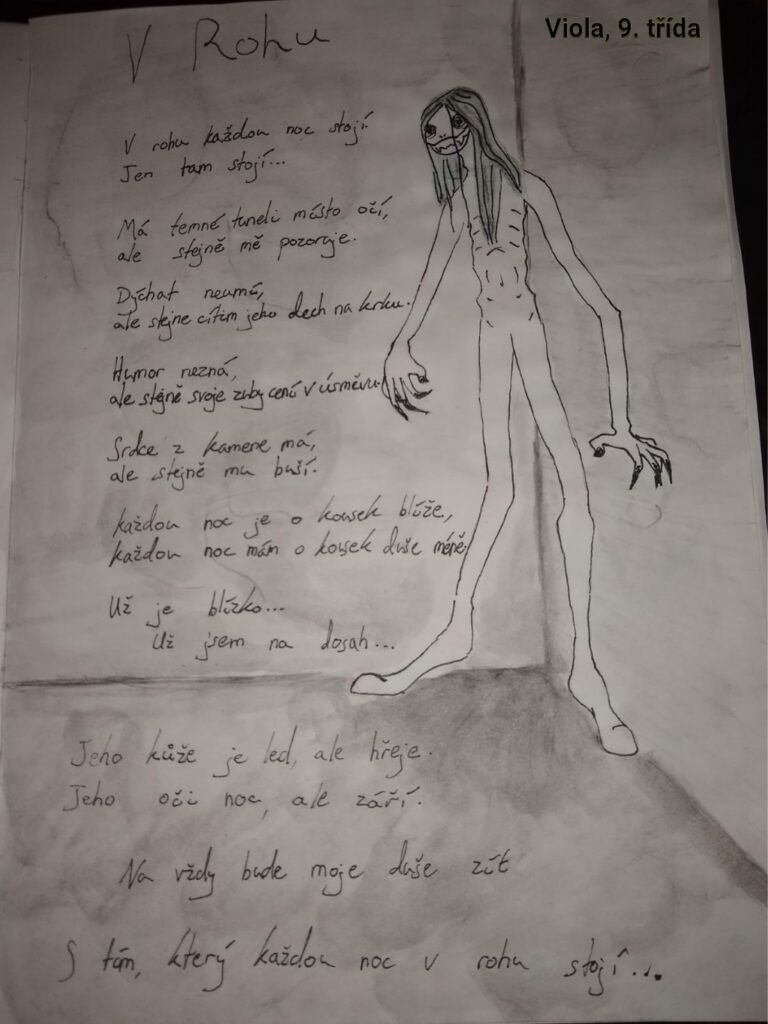 Viola, 9. třída
V Rohu
V rohu každou noc stojí.
Jen tam stojí...
Má temné tuneli místo očí,
ale stejně mě pozoruje.
Dýchat neumí,
ale stejne cítím jeho dech na krku.
Humor nezná,
ale stejně svoje zuby cení v úsměvu.
Srdce z kamene má,
ale stejně mu buší.
každou noc je o kousek blíže,
každou noc mám o kousek duše méně.
Už je blízko...
Už jsem na dosah...
Jeho kůže je led, ale hřeje.
Jeho oči noc, ale září.
Na vždy bude moje duše žít
S tím, který každou noc v rohu stojí...